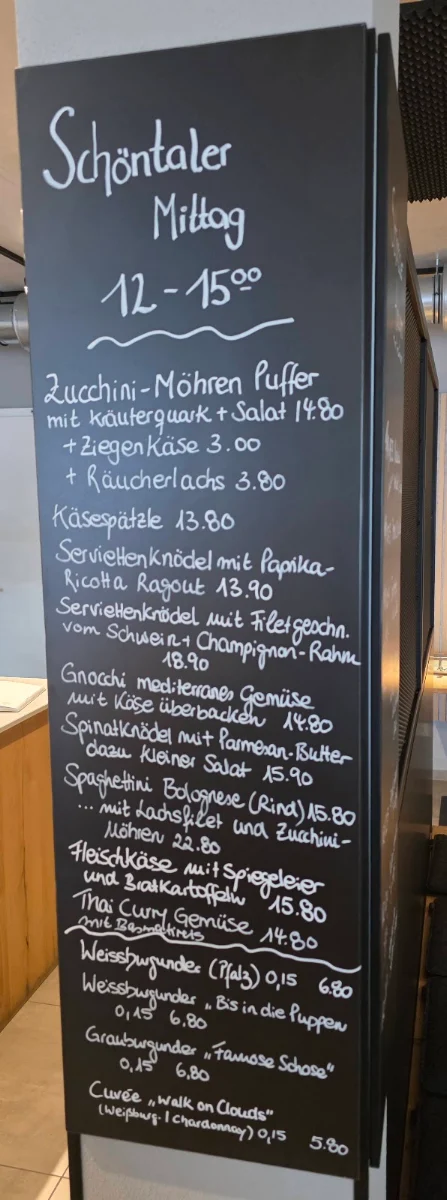 Schöntaler
Mittag
12 - 15⁰⁰
Zucchini-Möhren Puffer
mit Kräuterquark + Salat 14.80
+ Ziegenkäse 3.00
+ Räucherlachs 3.80
Käsespätzle 13.80
Serviettenknödel mit Paprika-
Ricotta Ragout 13.90
Serviettenknödel mit Filetgeschn.
vom Schwein + Champignon-Rahm
18.90
Gnocchi mediterranes Gemüse
mit Käse überbacken 14.80
Spinatknödel mit Parmesan-Butter
dazu kleiner Salat 15.90
Spaghettini Bolognese (Rind) 15.80
... mit Lachsfilet und Zucchini-
Möhren 22.80
Fleischkäse mit Spiegeleier
und Bratkartoffeln 15.80
Thai Curry Gemüse 14.80
mit Basmatireis
Weissburgunder (Pfalz) 0,15 6.80
Weissburgunder „Bis in die Puppen
0,15 6,80
Grauburgunder „Famose Schose"
0,15 6,80
Cuvée „Walk on Clouds"
(Weißburg. / Chardonnay) 0,15 5.80